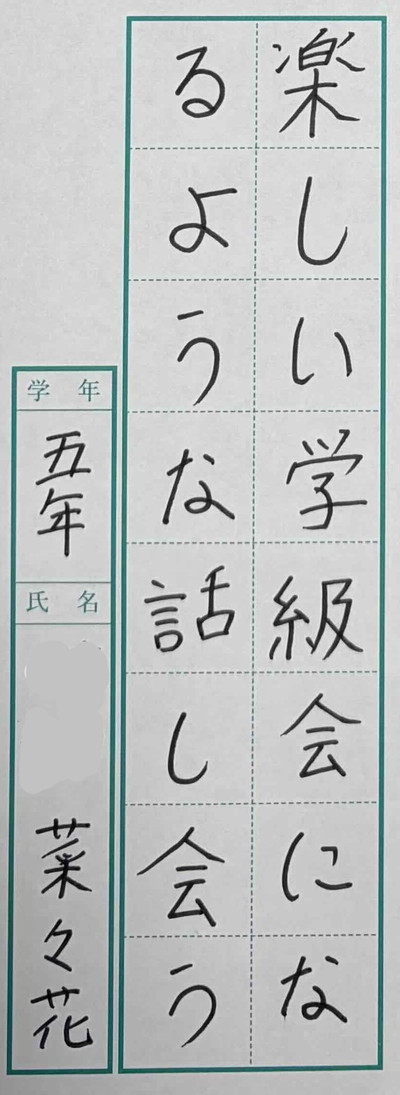 楽しい学級会にな
るような話し会う
学年
五年
氏名
菜々花